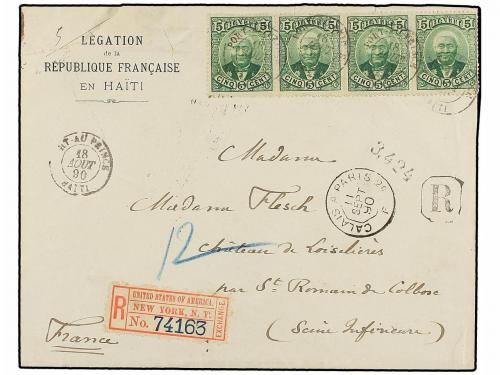 5 5 5 5 5 5 5 5
CINQ 5 CENT CINQ 5 CENT CINQ 5 CENT CINQ 5 CENT
LÉGATION
de la
RÉPUBLIQUE FRANÇAISE
EN HAÏTI
PT-AU-PRINCE
18
AOUT
90
HAÏTI
Madame
3424
Madame Flesch
CALAIS A PARIS
11
SEPT
90
R
12
Château de Loiselières
par St. Romain de Colbosc
(Seine Inférieure)
R
UNITED STATES OF AMERICA.
NEW YORK, N. Y.
No. 74163
EXCHANGE
France